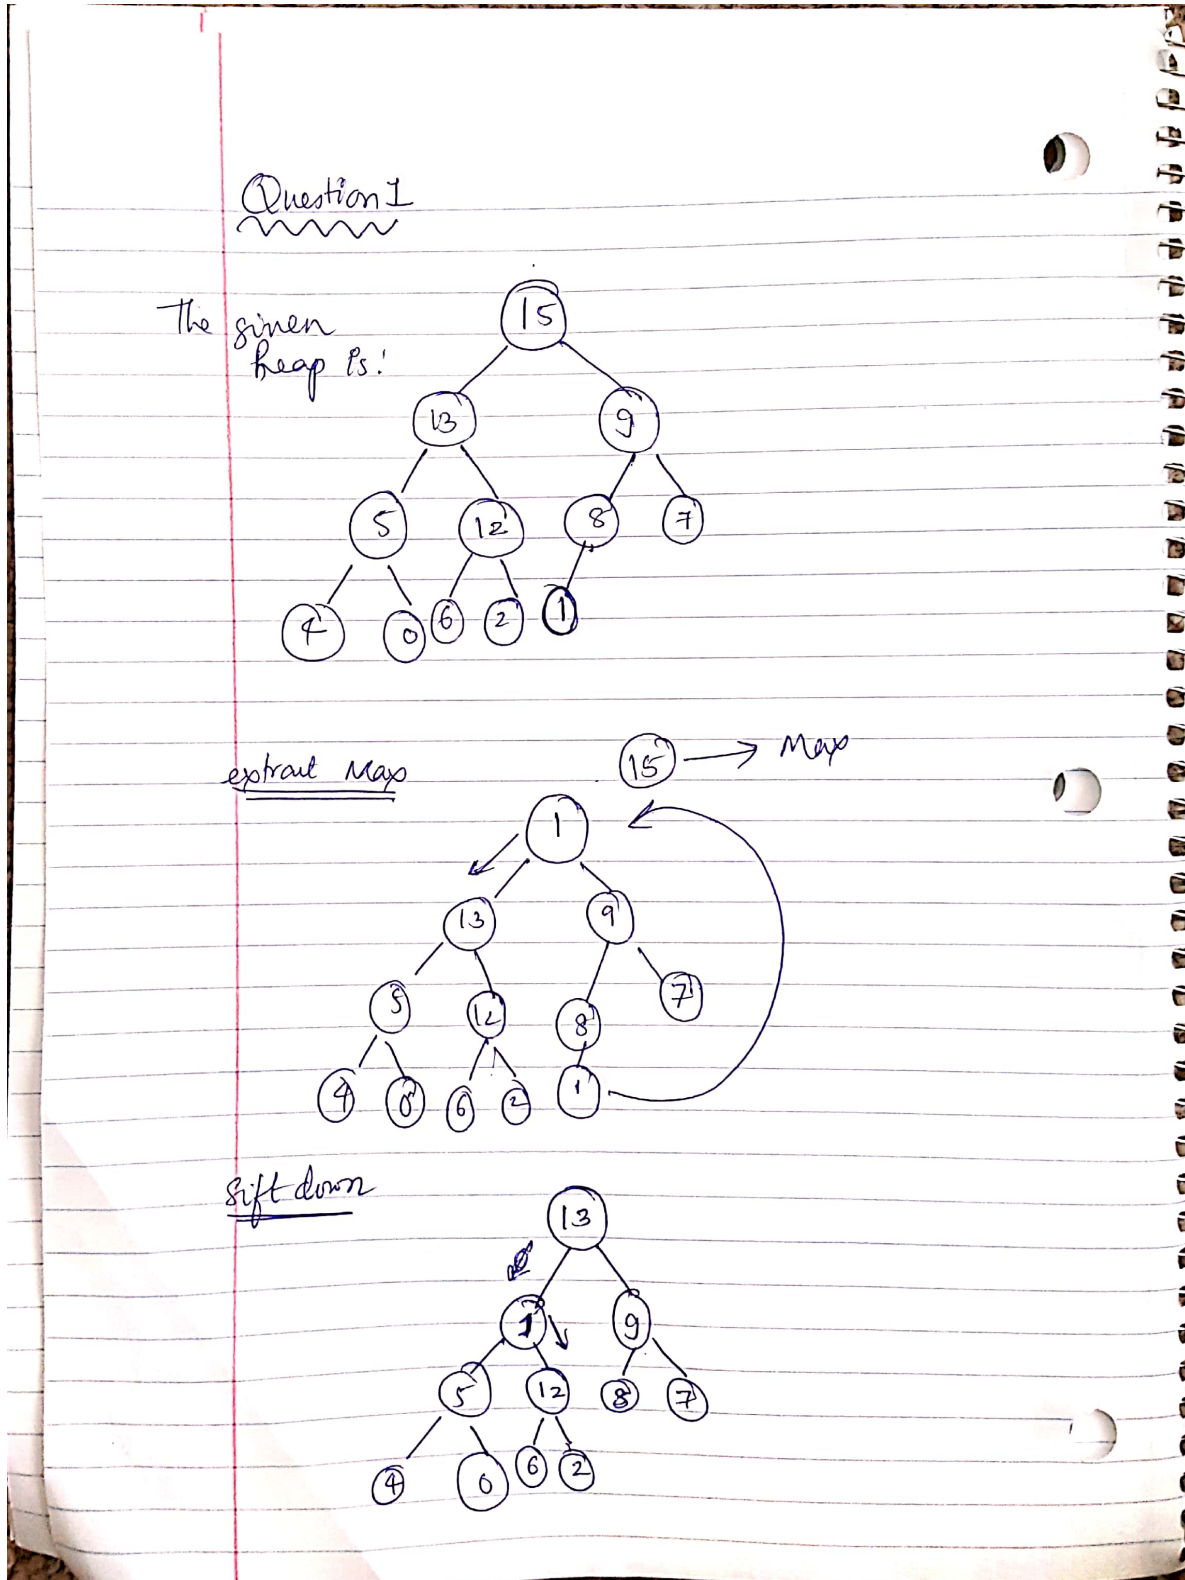 Question 1
15
The given
heap is:
13 9
5 12 8 7
4 0 6 2 1
15 → Max
extract Max
1
13 9
5 12 8 7
4 0 6 2 1
Sift down
13
1 9
5 12 8 7
4 0 6 2